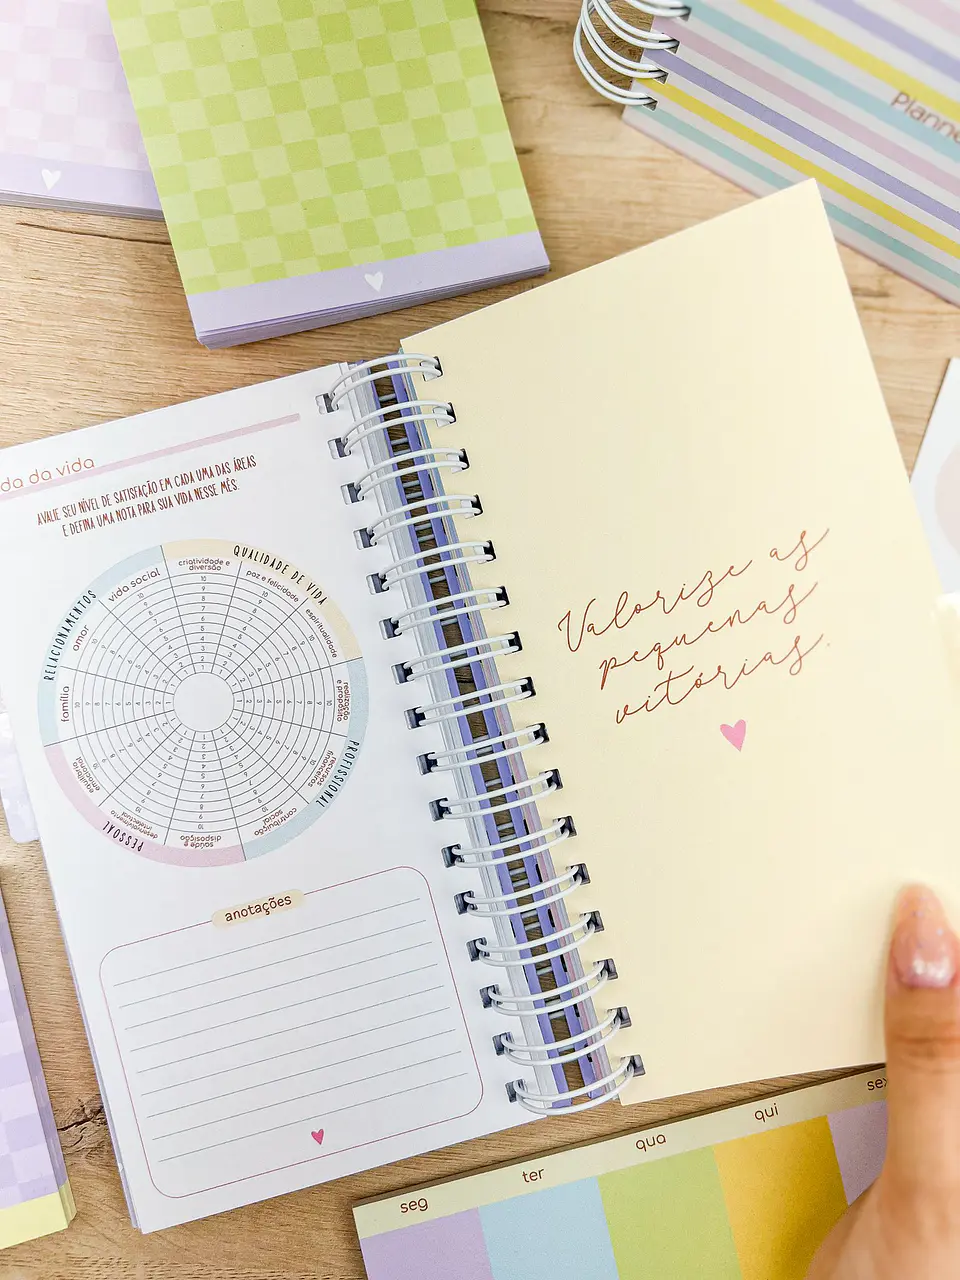 Planne
da da vida
AVALIE SEU NÍVEL DE SATISFAÇÃO EM CADA UMA DAS ÁREAS
E DEFINA UMA NOTA PARA SUA VIDA NESSE MÊS.
QUALIDADE DE VIDA
criatividade e
diversão
paz e felicidade
espiritualidade
PROFISSIONAL
realização
e propósito
recursos
financeiros
contribuição
social
PESSOAL
saúde e
disposição
desenvolvimento
intelectual
equilíbrio
emocional
RELACIONAMENTOS
família
amor
vida social
anotações
Valorize as
pequenas
vitórias.
seg
ter
qua
qui
sex